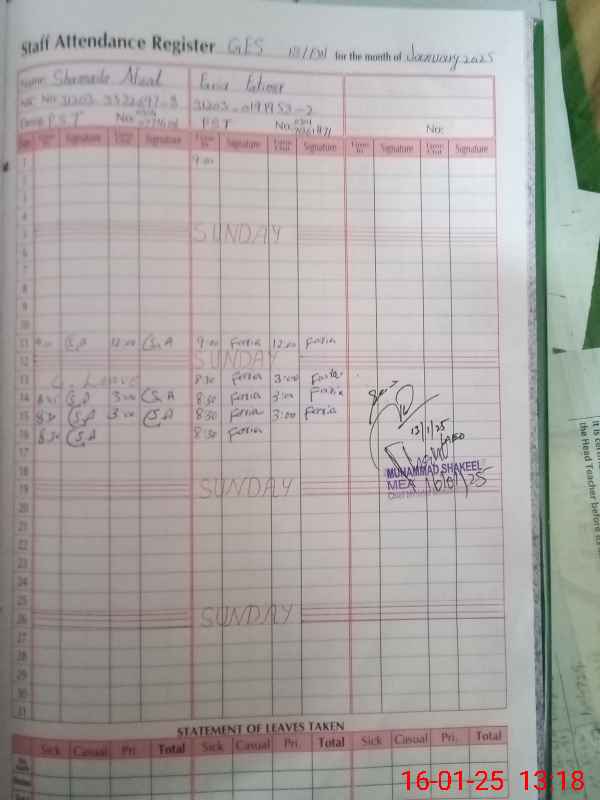 Staff Attendance Register GES for the month of January 2025
Name: Shamaila Fozia
NIC No 31203-3322697-8 31203-0191953-2
P.S.T No: PST No: No:
Time In Signature Time Out Signature Time In Signature Time Out Signature Time In Signature Time Out Signature
1 9:00
2
3
4
5 SUNDAY
6
7
8
9
10
11 9:00 S.A 12:00 S.A 9:00 Fozia 12:00 Fozia
12 SUNDAY
13 C. Leave 8:30 Fozia 3:00 Fozia
14 8:30 S.A 3:00 S.A 8:30 Fozia 3:00 Fozia
15 8:30 S.A 3:00 S.A 8:30 Fozia 3:00 Fozia
16 8:30 S.A 8:30 Fozia
13/1/25
17
18
MUHAMMAD SHAKEEL
19 SUNDAY
MEA 16/01/25
20
21
22
23
24
25
26 SUNDAY
27
28
29
30
31
STATEMENT OF LEAVES TAKEN
Sick Casual Pri. Total Sick Casual Pri. Total Sick Casual Pri. Total
the Head Teacher before
16-01-25 13:18